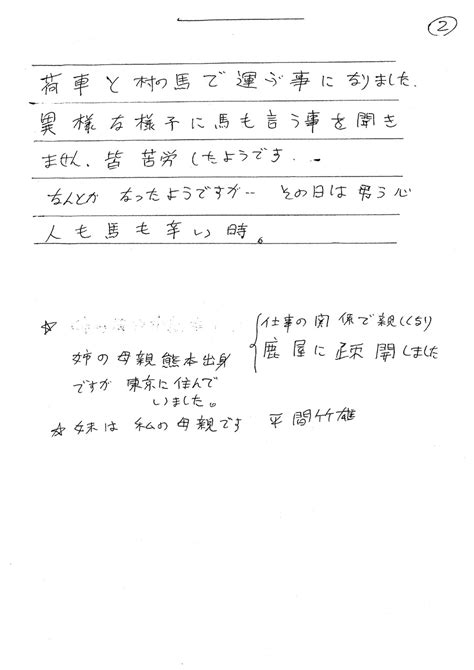 ②
荷車と村の馬で運ぶ事になりました.
異様な様子に馬も言う事を聞き
ません、皆苦労したようです...
なんとかなったようですが‥ その日は男う心
人も馬も辛い時。
☆
仕事の関係で親しくなり
鹿屋に疎開しました
姉の母親熊本出身
ですが東京に住んで
いました。
☆妹は私の母親です 平間竹雄